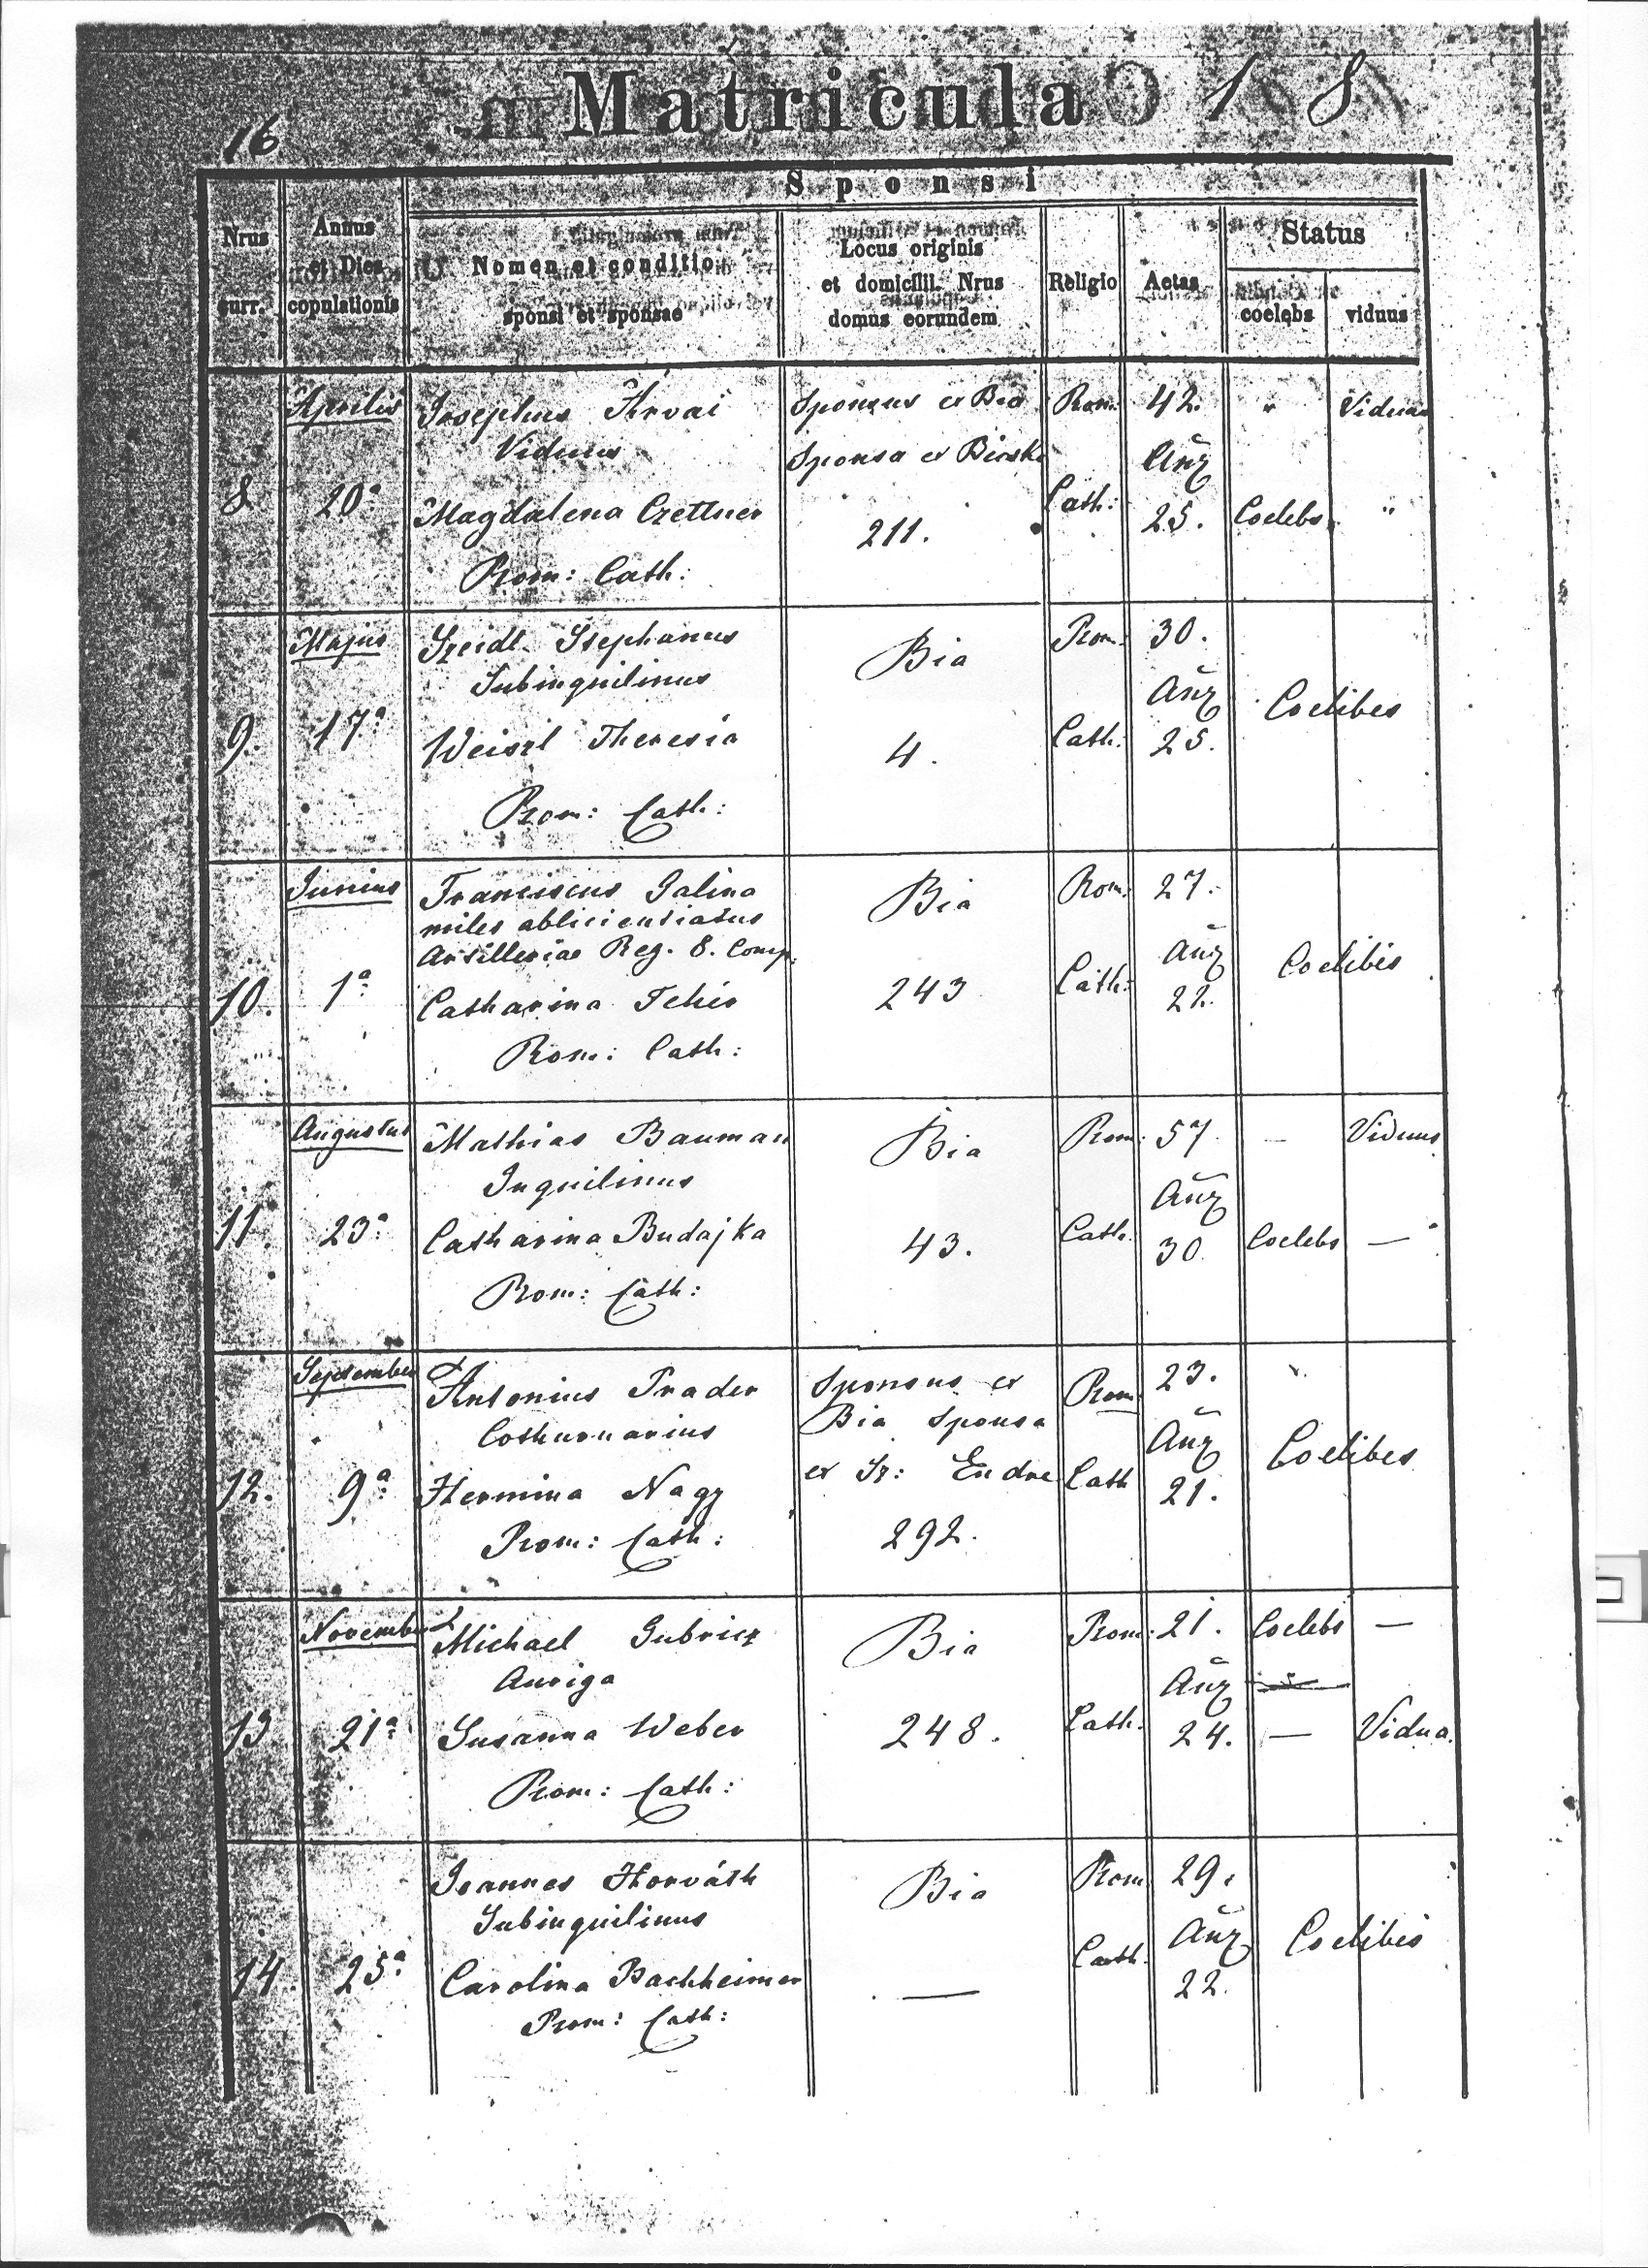 16
Matricula 18
Sponsi
Nrus curr.
Annus et Dies copulationis
Nomen et conditio sponsi et sponsae
Locus originis et domicilii. Nrus domus eorundem
Religio
Aetas
Status
coelebs
viduus
8 Aprilis 20a
Josephus Árvai
Viduus
Magdalena Czettner
Rom: Cath:
Sponsus ex Bia
Sponsa ex
211.
Rom: Cath:
42. Anz 25.
" Viduus
Coelebs "
9. Majus 17a
Szeidl Stephanus
Subinquilinus
Weiszl Theresia
Rom: Cath:
Bia
4.
Rom: Cath:
30. Anz 25.
Coelibes
10. Junius 1a
Franciscus Galina
miles ablicientiatus
Artilleriae Reg. 8. Comp.
Catharina Fehér
Rom: Cath:
Bia
243
Rom: Cath:
27. Anz 22.
Coelibes
11. Augustus 23a
Mathias Bauman
Inquilinus
Catharina Budajka
Rom: Cath:
Bia
43.
Rom: Cath.
57. Anz 30
— Viduus
Coelebs —
12. September 9a
Antonius Prader
Cothurnarius
Hermina Nagy
Rom: Cath:
Sponsus ex
Bia Sponsa
ex Sz: Endre
292.
Rom Cath
23. Anz 21.
Coelibes
13 November 21a
Michael Gubricz
Auriga
Susanna Weber
Rom: Cath:
Bia
248.
Rom: Cath:
21. Anz 24.
Coelebs —
— Vidua.
14. 25a
Joannes Horváth
Subinquilinus
Carolina Bachheimer
Rom: Cath:
Bia
—
Rom Cath.
29. Anz 22.
Coelibes